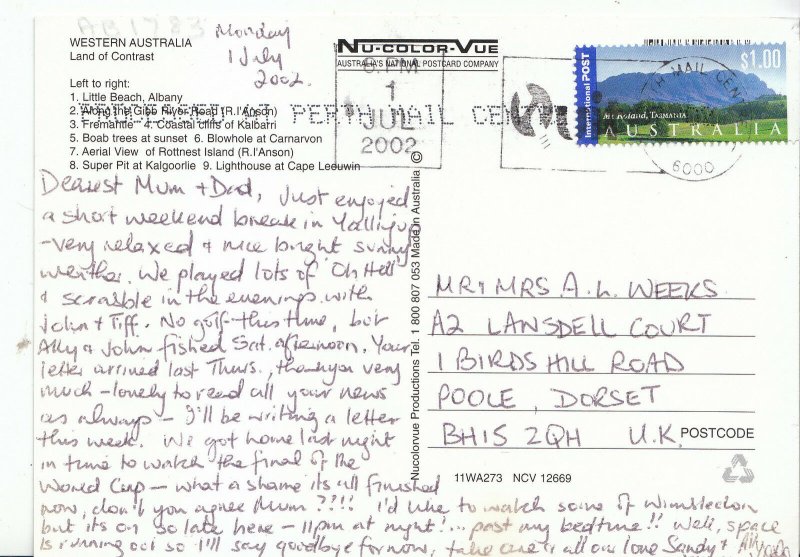 AB1783
WESTERN AUSTRALIA
Land of Contrast
Monday
1 July
2002.
Left to right:
1. Little Beach, Albany
2. Along the Gibb River Road (R.I'Anson)
3. Fremantle 4. Coastal cliffs of Kalbarri
5. Boab trees at sunset 6. Blowhole at Carnarvon
7. Aerial View of Rottnest Island (R.I'Anson)
8. Super Pit at Kalgoorlie 9. Lighthouse at Cape Leeuwin
NU-COLOR-VUE
AUSTRALIA'S NATIONAL POSTCARD COMPANY
PERTH MAIL CENTRE
6PM
1
JUL
2002
International POST
$1.00
Mt Roland, TASMANIA
AUSTRALIA
TH MAIL CENT
6000
Dearest Mum + Dad, Just enjoyed
a short weekend break in Yallingup
- very relaxed + nice bright sunny
weather. We played lots of 'Oh Hell
+ scrabble in the evenings with
John + Tiff. No golf this time, but
Ally + John fished Sat. afternoon. Your
letter arrived last Thurs., thankyou very
much - lovely to read all your news
as always - I'll be writing a letter
this week. We got home last night
in time to watch the final of the
World Cup - what a shame its all finished
now, don't you agree Mum???!! I'd like to watch some of Wimbledon
but its on so late here - 11pm at night!... past my bedtime!! Well, space
is running out so I'll say goodbye for now, take care + all our love Sandy +
Nucolorvue Productions Tel. 1 800 807 053 Made in Australia ©
MR + MRS A.L. WEEKS
A2 LANSDELL COURT
1 BIRDS HILL ROAD
POOLE, DORSET
BH15 2QH U.K. POSTCODE
11WA273 NCV 12669